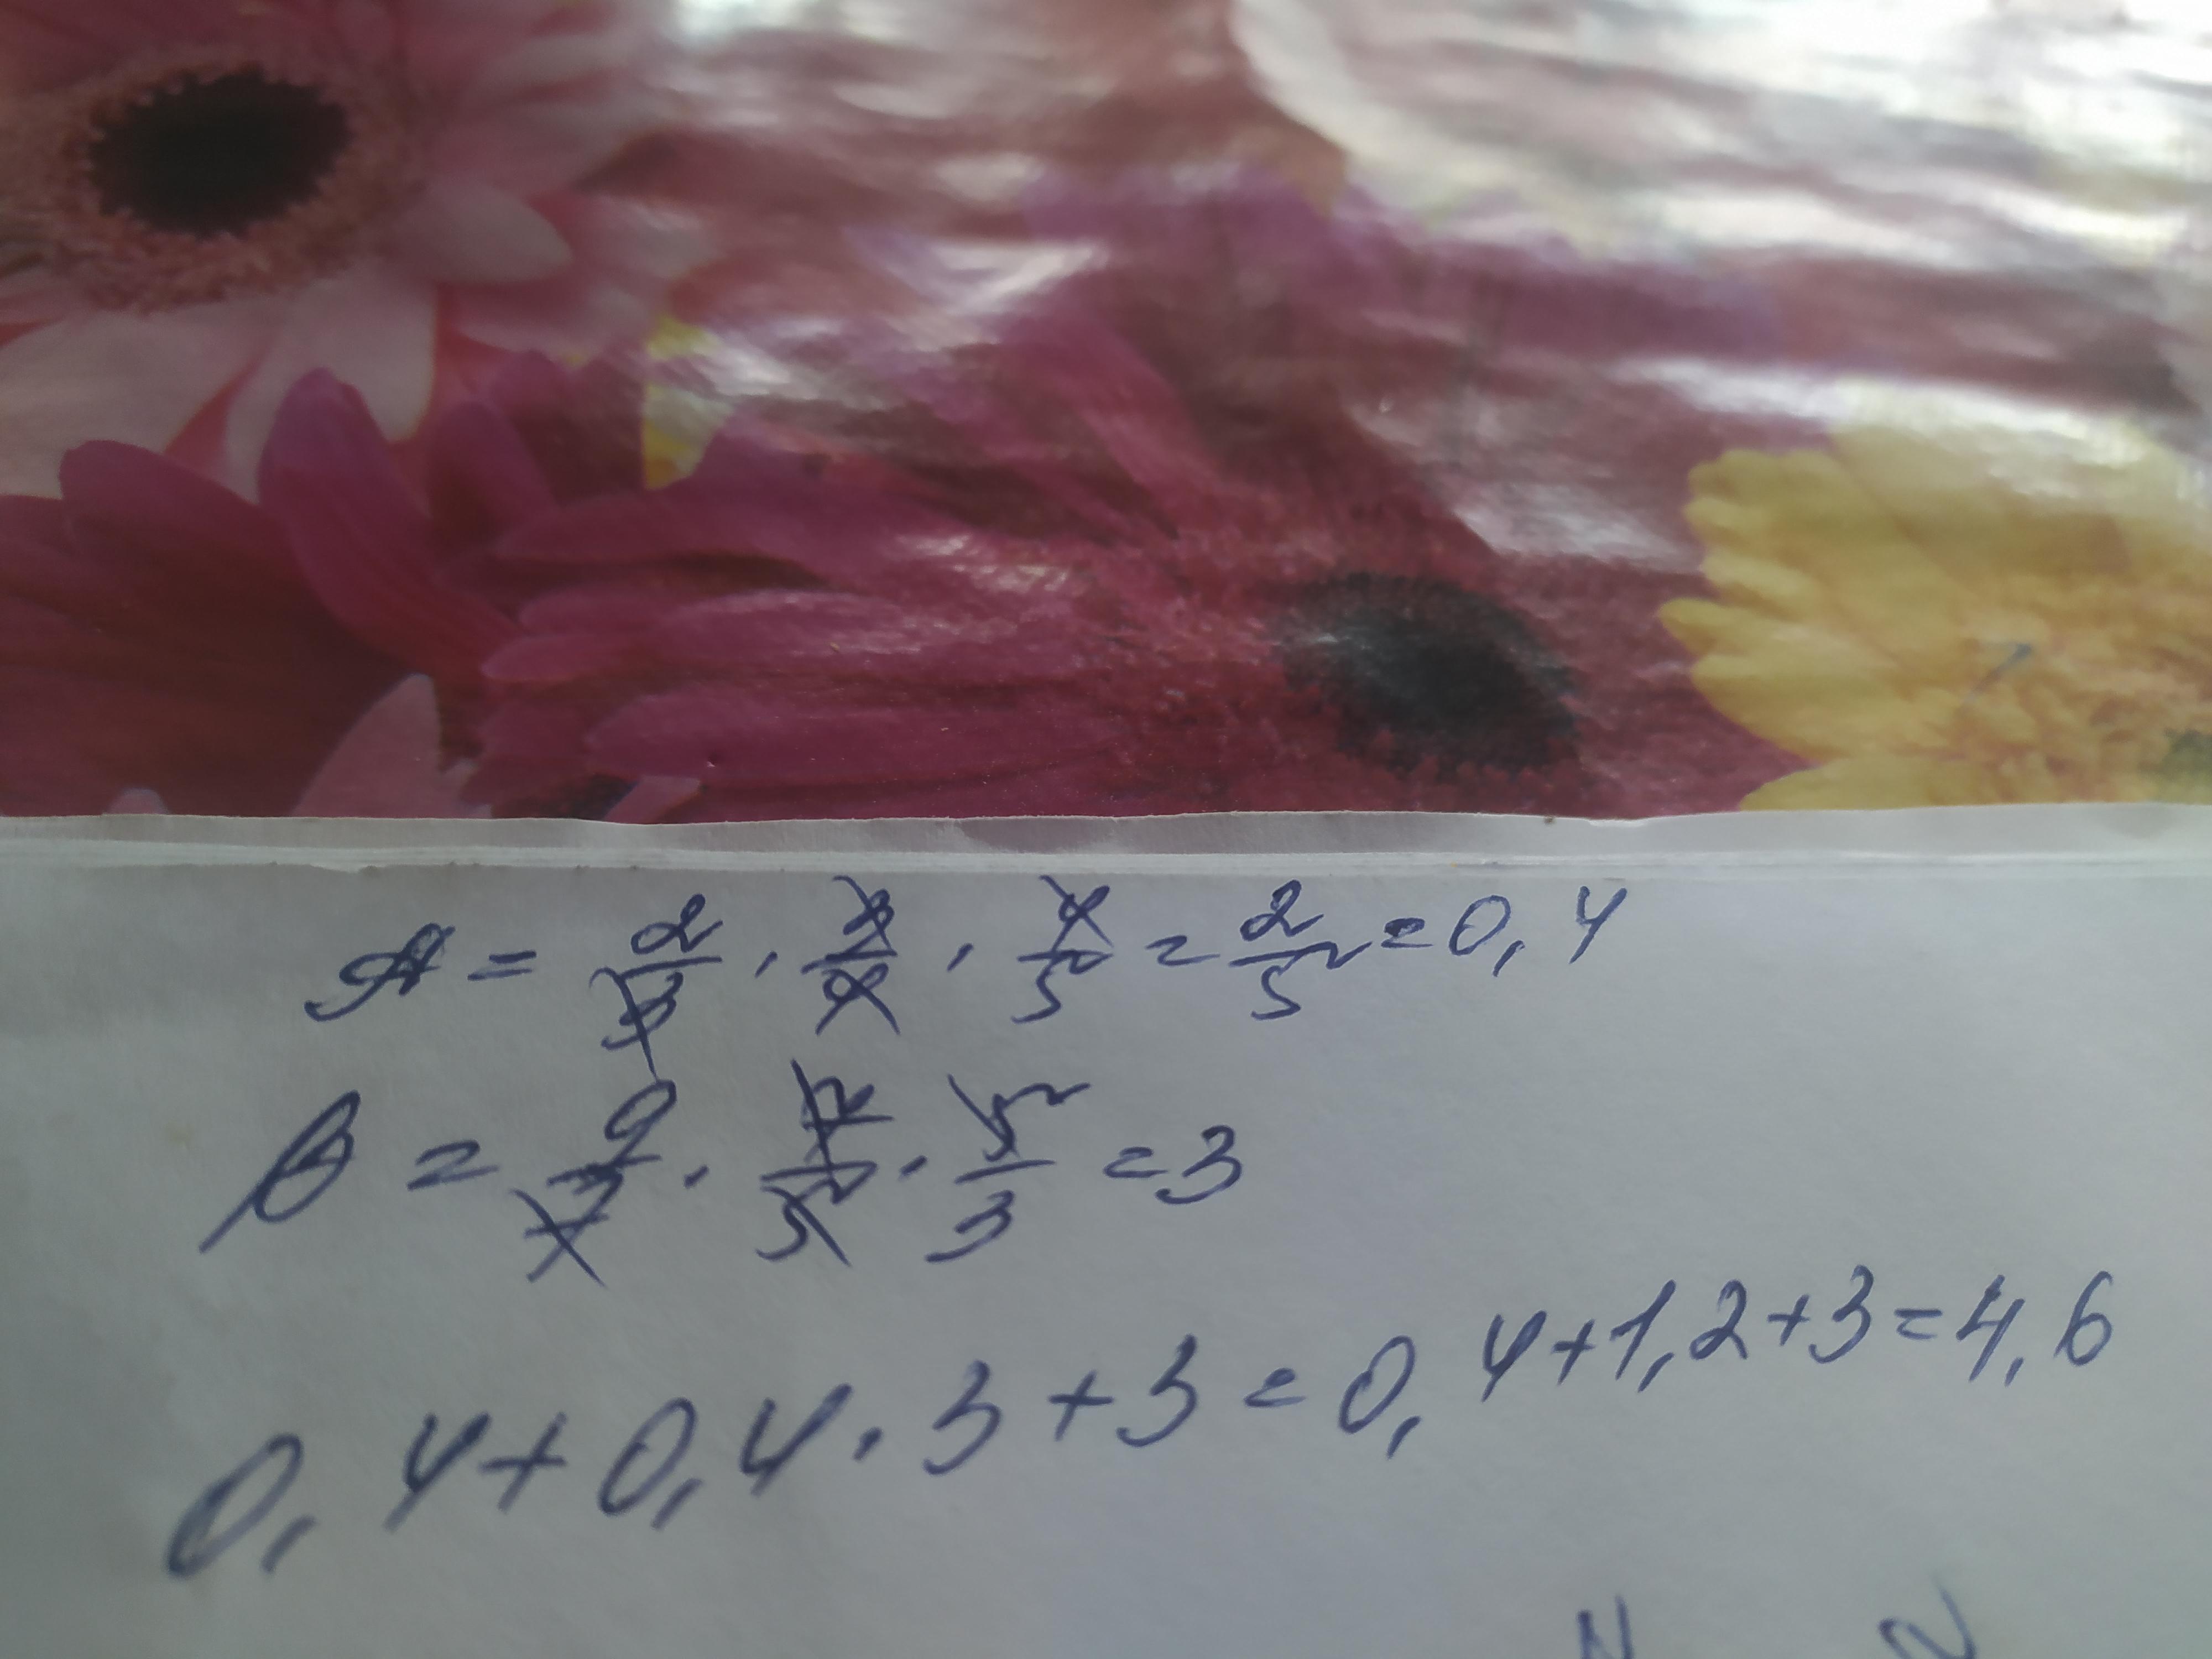 A = 2/3 · 3/4 · 4/5 = 2/5 = 0,4
B = 9/7 · 7/5 · 5/3 = 3
0,4+0,4·3+3=0,4+1,2+3=4,6